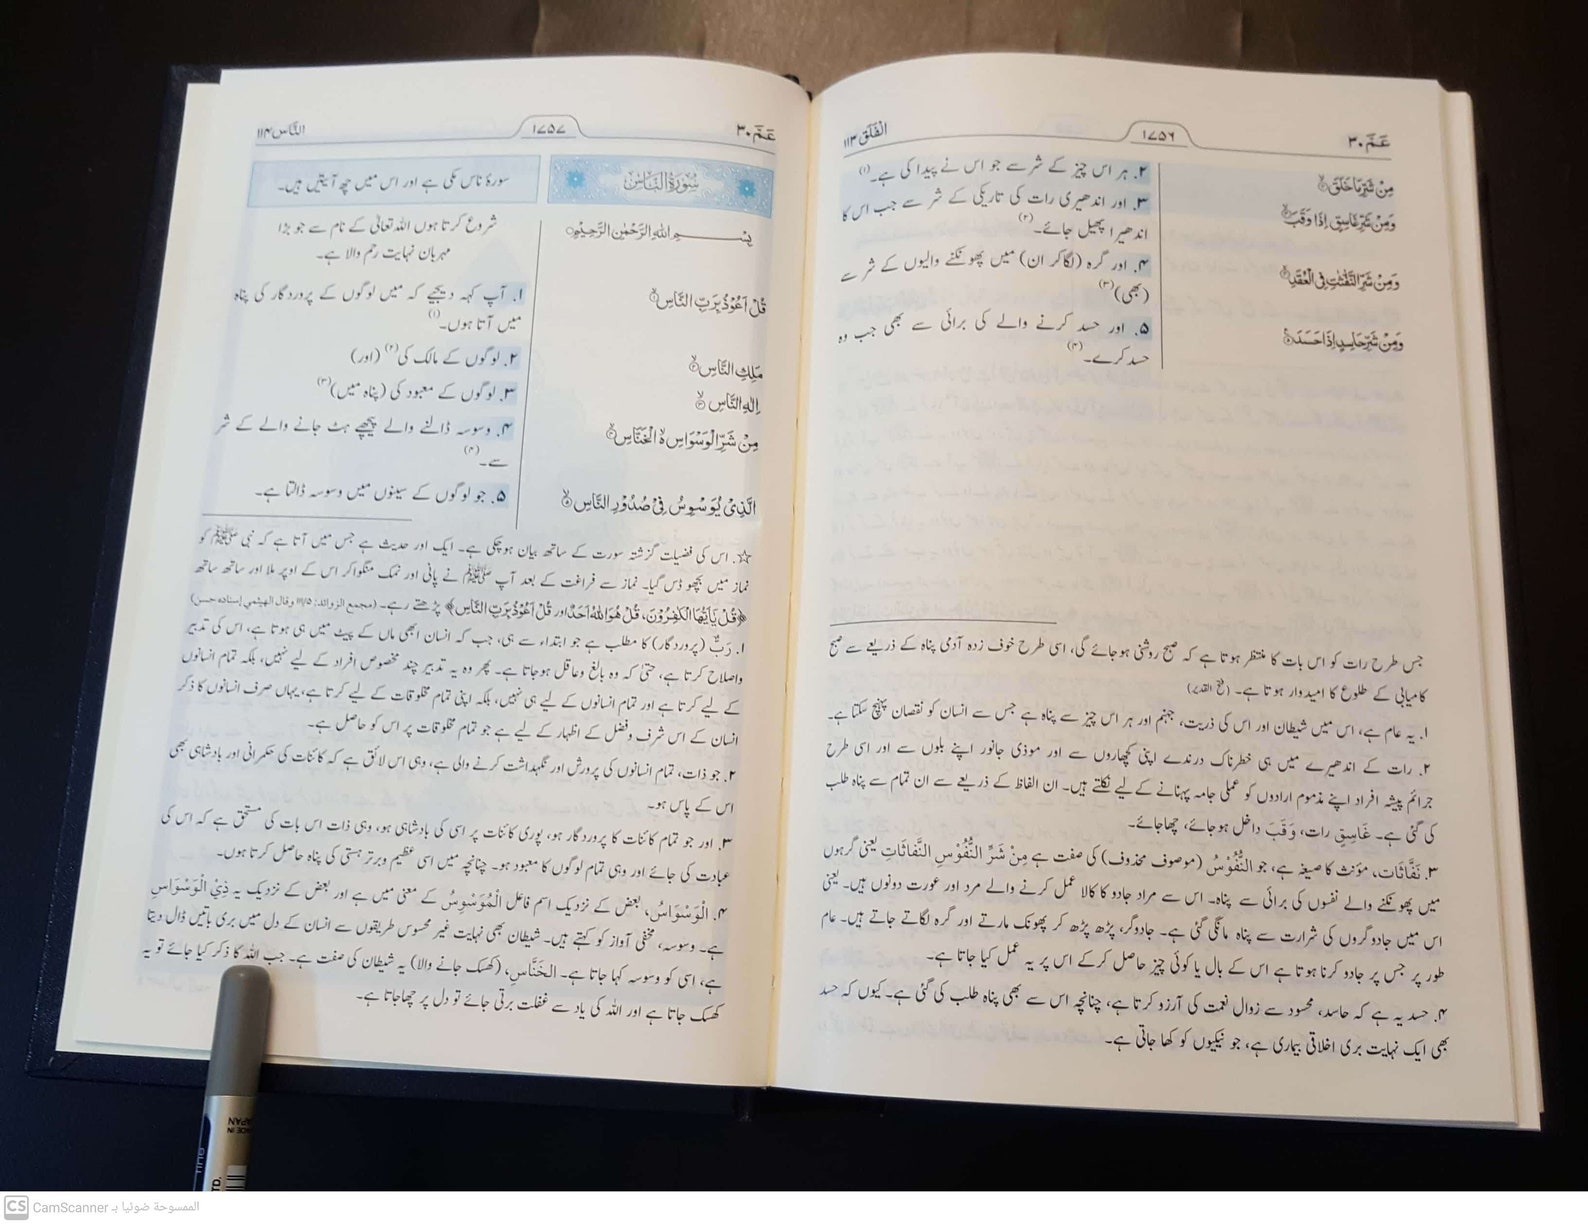 عَمَّ ٣٠
١٧٥٦
الْفَلَق ١١٣
مِنْ شَرِّ مَا خَلَقَ
وَمِنْ شَرِّ غَاسِقٍ اِذَا وَقَبَ
وَمِنْ شَرِّ النَّفّٰثٰتِ فِي الْعُقَدِ
وَمِنْ شَرِّ حَاسِدٍ اِذَا حَسَدَ
۲. ہر اس چیز کے شر سے جو اس نے پیدا کی ہے۔(۱)
۳. اور اندھیری رات کی تاریکی کے شر سے جب اس کا
اندھیرا پھیل جائے۔(۲)
۴. اور گرہ (لگاکر ان) میں پھونکنے والیوں کے شر سے
(بھی)(۳)
۵. اور حسد کرنے والے کی برائی سے بھی جب وہ
حسد کرے۔(۴)
جس طرح رات کو اس بات کا منتظر ہوتا ہے کہ صبح روشنی ہوجائے گی، اسی طرح خوف زدہ آدمی پناہ کے ذریعے سے صبح
کامیابی کے طلوع کا امیدوار ہوتا ہے۔ (فتح القدیر)
۱. یہ عام ہے، اس میں شیطان اور اس کی ذریت، جہنم اور ہر اس چیز سے پناہ ہے جس سے انسان کو نقصان پہنچ سکتا ہے۔
۲. رات کے اندھیرے میں ہی خطرناک درندے اپنی کچھاروں سے اور موذی جانور اپنے بلوں سے اور اسی طرح
جرائم پیشہ افراد اپنے مذموم ارادوں کو عملی جامہ پہنانے کے لیے نکلتے ہیں۔ ان الفاظ کے ذریعے سے ان تمام سے پناہ طلب
کی گئی ہے۔ غَاسِقٍ رات، وَقَبَ داخل ہوجائے، چھاجائے۔
۳. نَفَّاثَات، مؤنث کا صیغہ ہے، جو النُّفُوْسُ (موصوف محذوف) کی صفت ہے مِنْ شَرِّ النُّفُوْسِ النَّفاثَاتِ یعنی گرہوں
میں پھونکنے والے نفسوں کی برائی سے پناہ۔ اس سے مراد جادو کا کالا عمل کرنے والے مرد اور عورت دونوں ہیں۔ یعنی
اس میں جادوگروں کی شرارت سے پناہ مانگی گئی ہے۔ جادوگر، پڑھ پڑھ کر پھونک مارتے اور گرہ لگاتے جاتے ہیں۔ عام
طور پر جس پر جادو کرنا ہوتا ہے اس کے بال یا کوئی چیز حاصل کرکے اس پر یہ عمل کیا جاتا ہے۔
۴. حسد یہ ہے کہ حاسد، محسود سے زوال نعمت کی آرزو کرتا ہے، چنانچہ اس سے بھی پناہ طلب کی گئی ہے۔ کیوں کہ حسد
بھی ایک نہایت بری اخلاقی بیماری ہے، جو نیکیوں کو کھا جاتی ہے۔
عَمَّ ٣٠
١٧٥٧
النَّاس ١١۴
سُوْرَةُ النَّاسِ
سورۂ ناس مکی ہے اور اس میں چھ آیتیں ہیں۔
بِسْمِ اللّٰهِ الرَّحْمٰنِ الرَّحِيْمِ
قُلْ اَعُوْذُ بِرَبِّ النَّاسِ
مَلِكِ النَّاسِ
اِلٰهِ النَّاسِ
مِنْ شَرِّ الْوَسْوَاسِ الْخَنَّاسِ
الَّذِيْ يُوَسْوِسُ فِيْ صُدُوْرِ النَّاسِ
شروع کرتا ہوں اللہ تعالٰی کے نام سے جو بڑا
مہربان نہایت رحم والا ہے۔
۱. آپ کہہ دیجیے کہ میں لوگوں کے پروردگار کی پناہ
میں آتا ہوں۔(۱)
۲. لوگوں کے مالک کی(۲) (اور)
۳. لوگوں کے معبود کی (پناہ میں)(۳)
۴. وسوسہ ڈالنے والے پیچھے ہٹ جانے والے کے شر
سے۔(۴)
۵. جو لوگوں کے سینوں میں وسوسہ ڈالتا ہے۔
☆. اس کی فضیات گزشتہ سورت کے ساتھ بیان ہوچکی ہے۔ ایک اور حدیث ہے جس میں آتا ہے کہ نبی ﷺ کو
نماز میں بچھو ڈس گیا۔ نماز سے فراغت کے بعد آپ ﷺ نے پانی اور نمک منگواکر اس کے اوپر ملا اور ساتھ ساتھ
﴿قُلْ يٰٓاَيُّهَا الْكٰفِرُوْنَ، قُلْ هُوَ اللّٰهُ اَحَدٌ اور قُلْ اَعُوْذُ بِرَبِّ النَّاسِ﴾ پڑھتے رہے۔ (مجمع الزوائد: ۱۱۱/۵ وقال الهيثمي إسناده حسن)
۱. رَبٌّ (پروردگار) کا مطلب ہے جو ابتداء سے ہی، جب کہ انسان ابھی ماں کے پیٹ میں ہی ہوتا ہے، اس کی تدبیر
واصلاح کرتا ہے، حتیٰ کہ وہ بالغ وعاقل ہوجاتا ہے۔ پھر وہ یہ تدبیر چند مخصوص افراد کے لیے نہیں، بلکہ تمام انسانوں
کے لیے کرتا ہے اور تمام انسانوں کے لیے ہی نہیں، بلکہ اپنی تمام مخلوقات کے لیے کرتا ہے، یہاں صرف انسانوں کا ذکر
انسان کے اس شرف وفضل کے اظہار کے لیے ہے جو تمام مخلوقات پر اس کو حاصل ہے۔
۲. جو ذات، تمام انسانوں کی پرورش اور نگہداشت کرنے والی ہے، وہی اس لائق ہے کہ کائنات کی حکمرانی اور بادشاہی بھی
اس کے پاس ہو۔
۳. اور جو تمام کائنات کا پروردگار ہو، پوری کائنات پر اسی کی بادشاہی ہو، وہی ذات اس بات کی مستحق ہے کہ اس کی
عبادت کی جائے اور وہی تمام لوگوں کا معبود ہو۔ چنانچہ میں اسی عظیم وبرتر ہستی کی پناہ حاصل کرتا ہوں۔
۴. الْوَسْوَاسُ، بعض کے نزدیک اسم فاعل الْمُوَسْوِسُ کے معنی میں ہے اور بعض کے نزدیک یہ ذِيْ الْوَسْوَاسِ
ہے۔ وسوسہ، مخفی آواز کو کہتے ہیں۔ شیطان بھی نہایت غیر محسوس طریقوں سے انسان کے دل میں بری باتیں ڈال دیتا
ہے، اسی کو وسوسہ کہا جاتا ہے۔ الخَنَّاسِ، (کھسک جانے والا) یہ شیطان کی صفت ہے۔ جب اللہ کا ذکر کیا جائے تو یہ
کھسک جاتا ہے اور اللہ کی یاد سے غفلت برتی جائے تو دل پر چھاجاتا ہے۔
JAPAN
CS CamScanner الممسوحة ضوئيا بـ